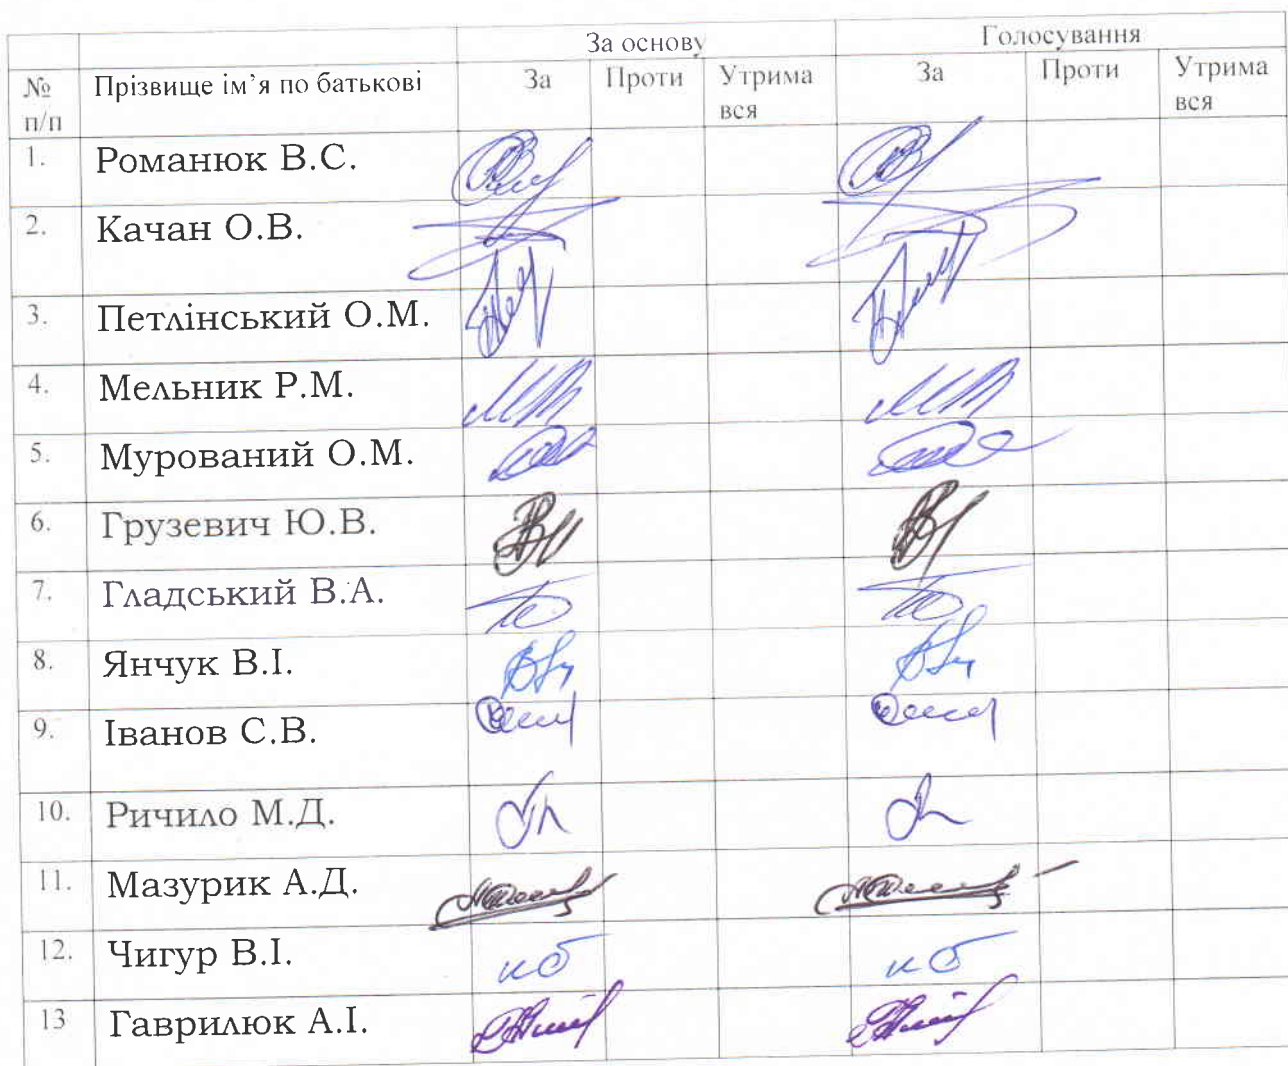 За основу Голосування
№ п/п Прізвище ім’я по батькові За Проти Утрима вся За Проти Утрима вся
1. Романюк В.С.
2. Качан О.В.
3. Петлінський О.М.
4. Мельник Р.М.
5. Мурований О.М.
6. Грузевич Ю.В.
7. Гладський В.А.
8. Янчук В.І.
9. Іванов С.В.
10. Ричило М.Д.
11. Мазурик А.Д.
12. Чигур В.І.
13 Гаврилюк А.І.